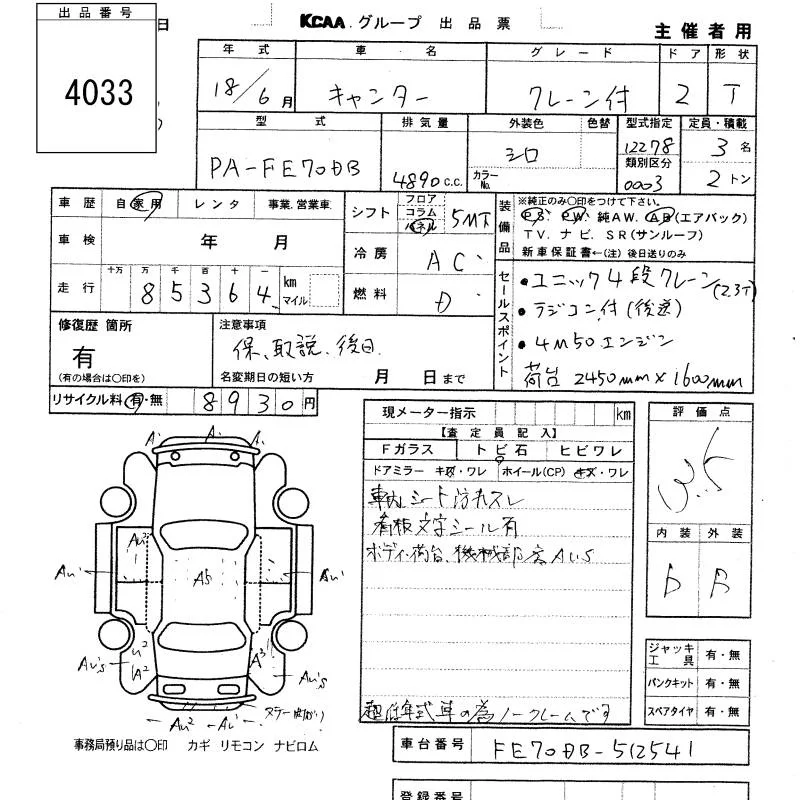 出品番号
日
KCAA.グループ 出品票
主催者用
4033
年式 車名 グレード ドア 形状
18/6月 キャンター クレーン付 2 T
型式 排気量 外装色 色替 型式指定 定員・積載
12278 3名
類別区分
PA-FE70DB 4890c.c. シロ カラーNo. 0003 2トン
車歴 自家用 レンタ 事業.営業車.
シフト フロア コラム パネル 5MT
装備品 ※純正のみ○印をつけて下さい。
P.S. P.W. 純AW. AB(エアバック)
TV. ナビ. SR(サンルーフ)
新車保証書←(注) 後日送りのみ
車検 年 月
冷房 AC
走行 十万 万 千 百 十 一
85364 km マイル
燃料 D
セールスポイント
・ユニック4段クレーン(2.3T)
・ラジコン付(後送)
・4M50エンジン
荷台 2450mm×1600mm
修復歴 箇所
有
(有の場合は○印を)
注意事項
保、取説、後日
名変期日の短い方 月 日まで
リサイクル料 有・無 8930円
現メーター指示 km
【査定員記入】
Fガラス トビ石 ヒビワレ
ドアミラー キズ・ワレ ホイール(CP) キズ・ワレ
車内シート汚れスレ
看板文字シール有
ボディ・荷台、機械部居AU.S
超低年式車の為ノークレームです
評価点
3.5
内装 外装
D B
ジャッキ工具 有・無
パンクキット 有・無
スペアタイヤ 有・無
A A A
AU² AU' A5 AU'
AU'S U² A² A³ AU'S
AU² AU'
事務局預り品は○印 カギ リモコン ナビロム
車台番号 FE70DB-512541
登録番号